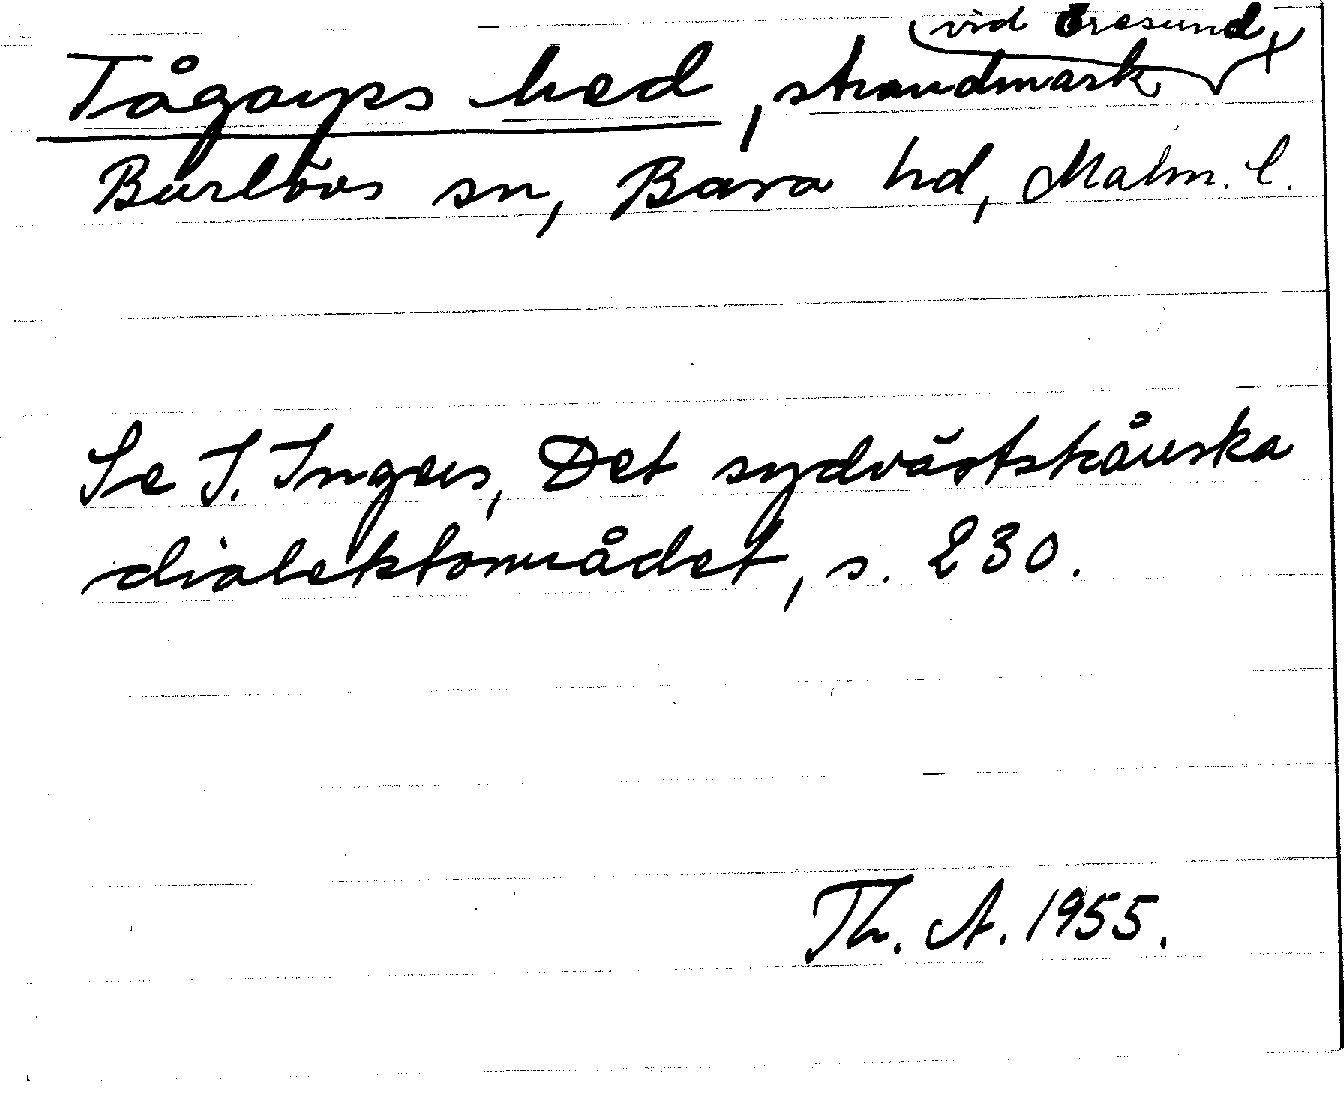 Tågarps hed, strandmark vid Öresund,
Burlövs sn, Bara hd, Malm. l.
Se I. Ingers, Det sydvästskånska
dialektområdet, s. 230.
Th. A. 1955.